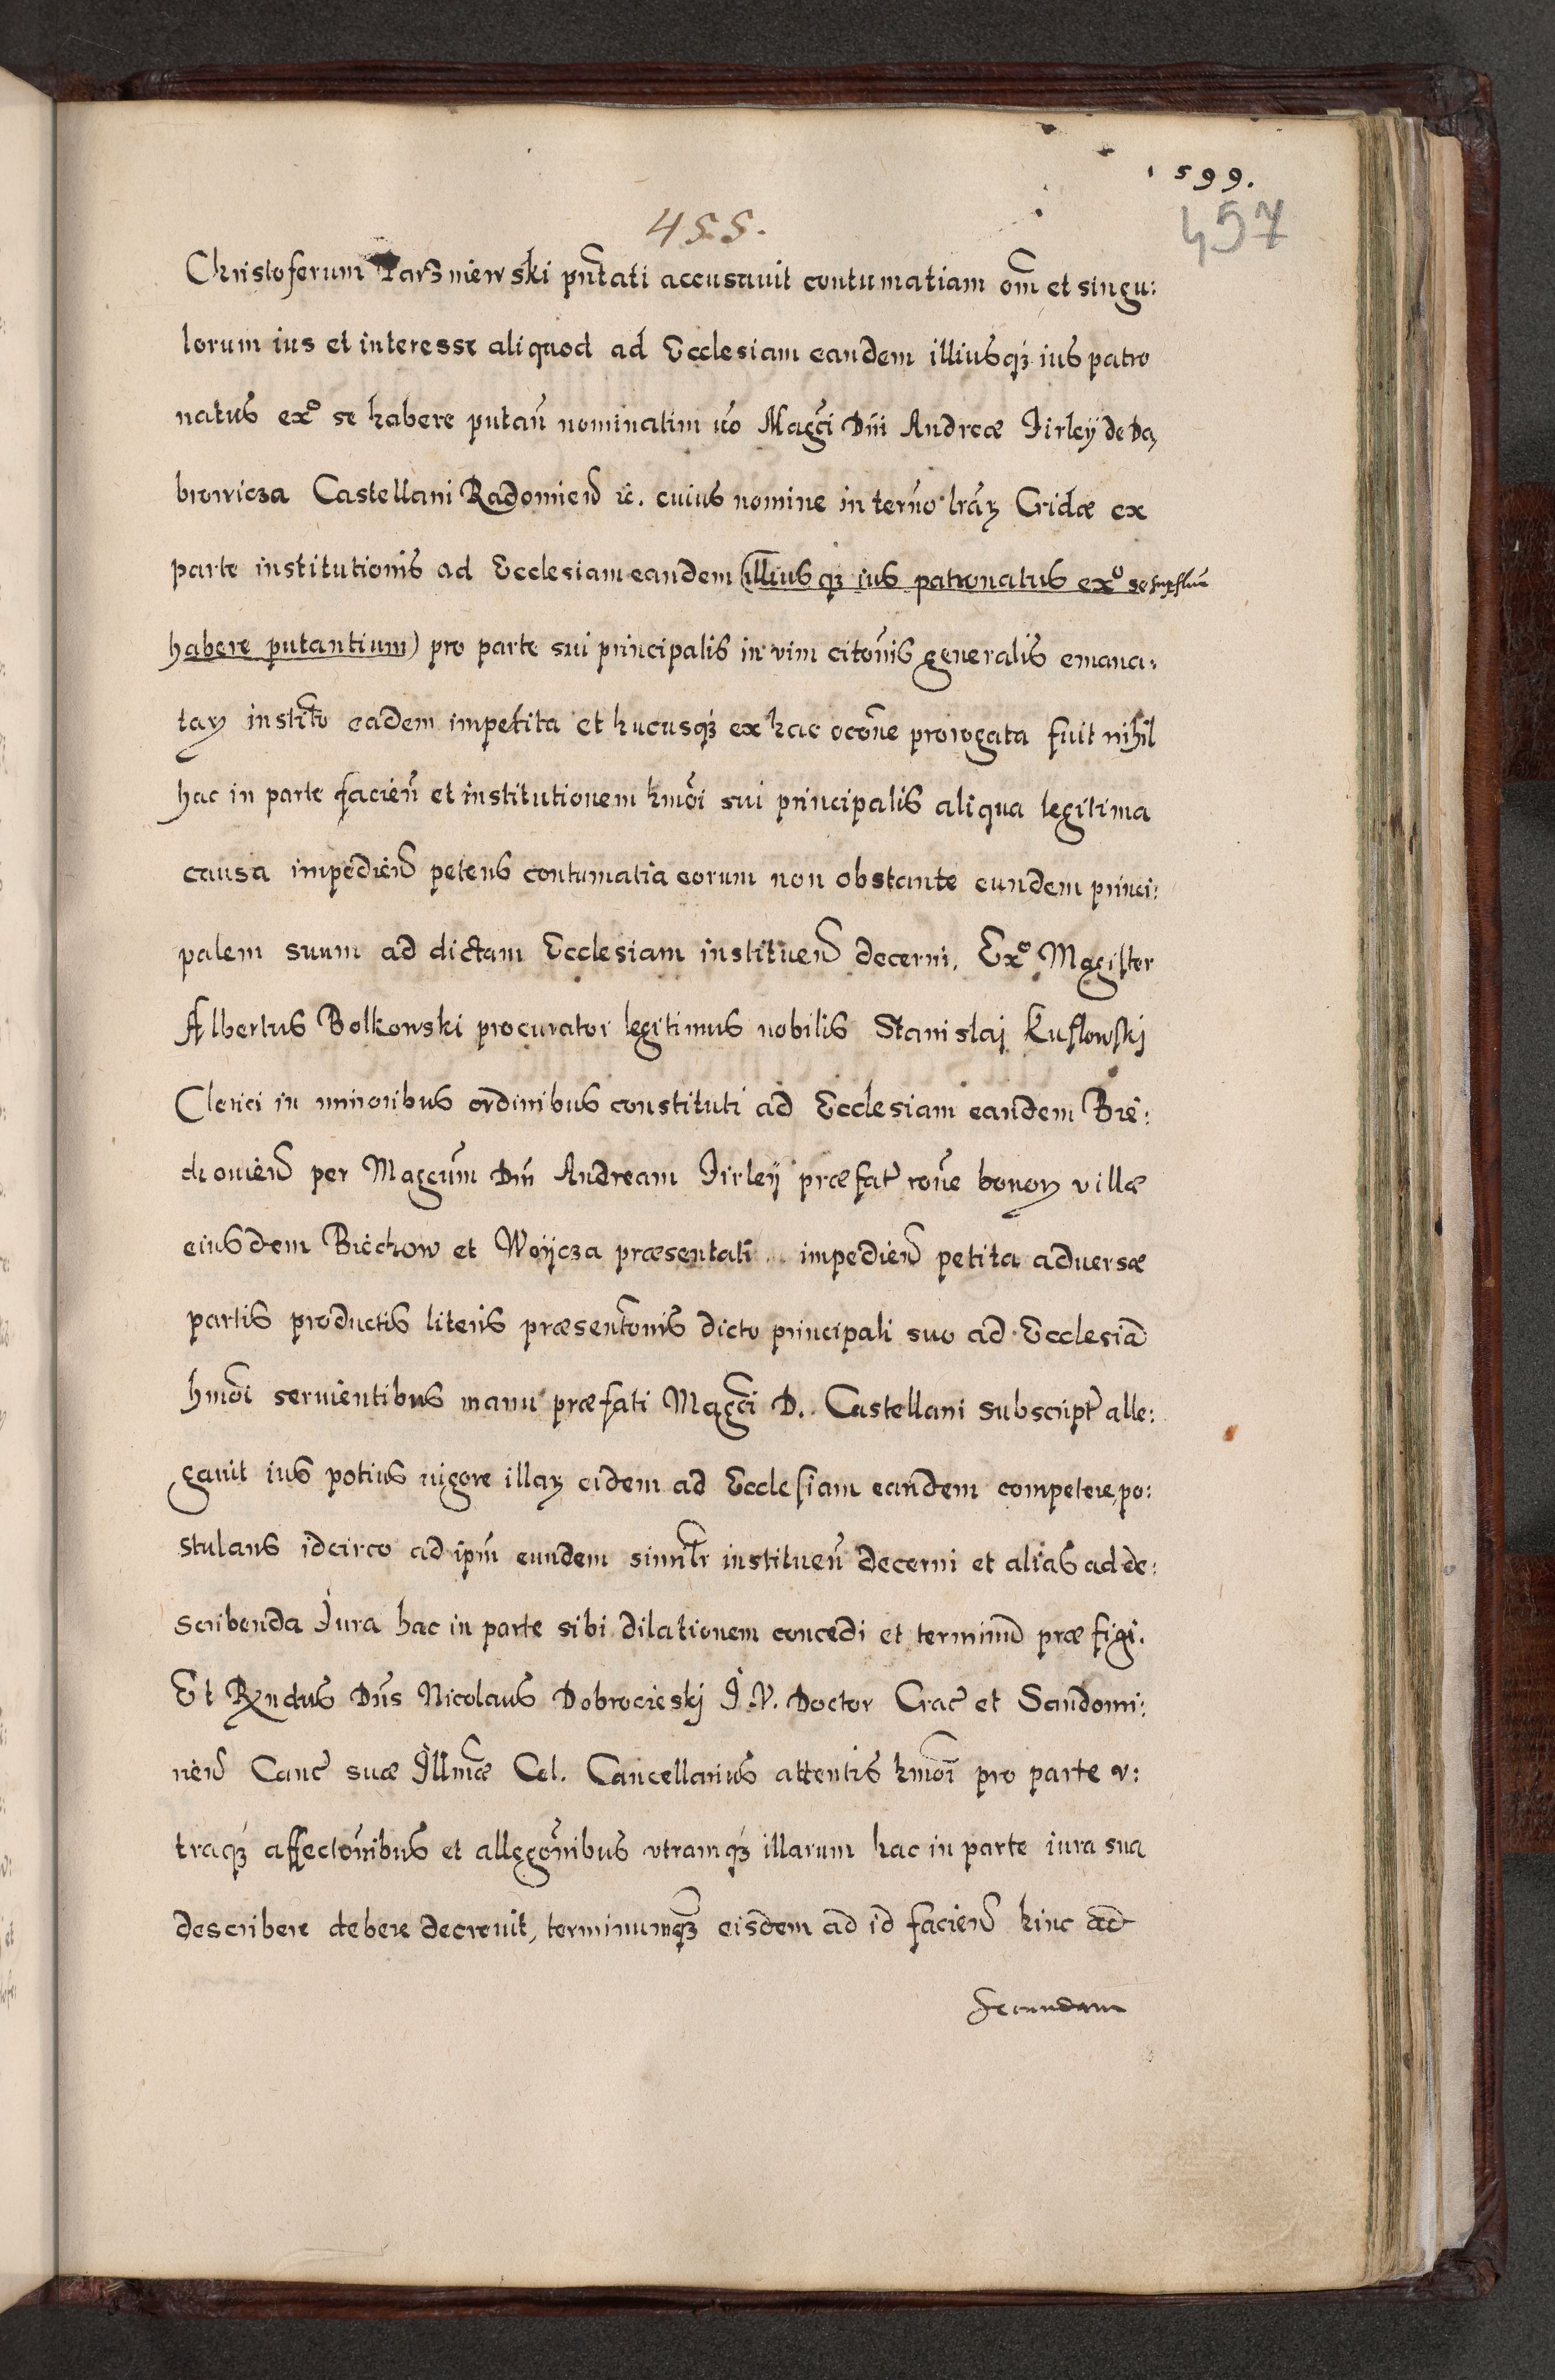 1599.
457
455.
Christoferum Jarzniewski pn̄tati accusauit contumatiam om̄ et singu:
lorum ius et interesse aliquod ad Ecclesiam eandem illiusqȝ ius patro
natus exº se habere putan̄ nominatim v̄o Magci Dn̄i Andreæ Firleÿ de Da
browicza Castellani Radomien̄ ꝛc. cuius nomine in termo l̄raꝝ Cridæ ex
parte institutionis ad Ecclesiam eandem (illiusqȝ ius patronatus exº se
habere putantium) pro parte sui principalis in vim citon̄is generalis emana:
taꝝ institᵒ eadem impetita et hucusqȝ ex hac occōne prorogata fuit nihil
hac in parte facien̄ et institutionem hmōi sui principalis aliqua legitima
causa impedien̄ petens contumatia eorum non obstante eundem princi:
palem suum ad dictam Ecclesiam instituen̄ decerni. Exº Magister
Albertus Bolkowski procurator legitimus nobilis Stanislai Kuflowskj
Clerici in minoribus ordinibus constituti ad Ecclesiam eandem Bie:
chouien̄ per Magcūm Dn̄ Andream Firleÿ præfat̄ rōne bonoꝝ villæ
eiusdem Biechow et Woÿcza præsentati impedien̄ petita aduersæ
partis productis literis præsentōnis dicto principali suo ad Ecclesiā
hmōi seruientibus manu præfati Magci D. Castellani subscript̄ alle:
gauit ius potius uigore illaꝝ eidem ad Ecclesiam eandem competere, po:
stulans idcirco ad ipm̄ eundem similr̄ instituen̄ decerni et alias ad de:
scribenda Jura hac in parte sibi dilationem concedi et terminū præfigi.
Et Rṇdus Dn̄s Nicolaus Dobrocieskj J.V. Doctor Crac̄ et Sandomi:
rien̄ Canc̄ suæ Illmæ Cel. Cancellarius attentis hmōi pro parte v:
traqȝ affectōnibus et allegōnibus vtramqȝ illarum hac in parte iura sua
describere debere decreuit, terminumqȝ eisdem ad id facien̄ hinc ad
secundam